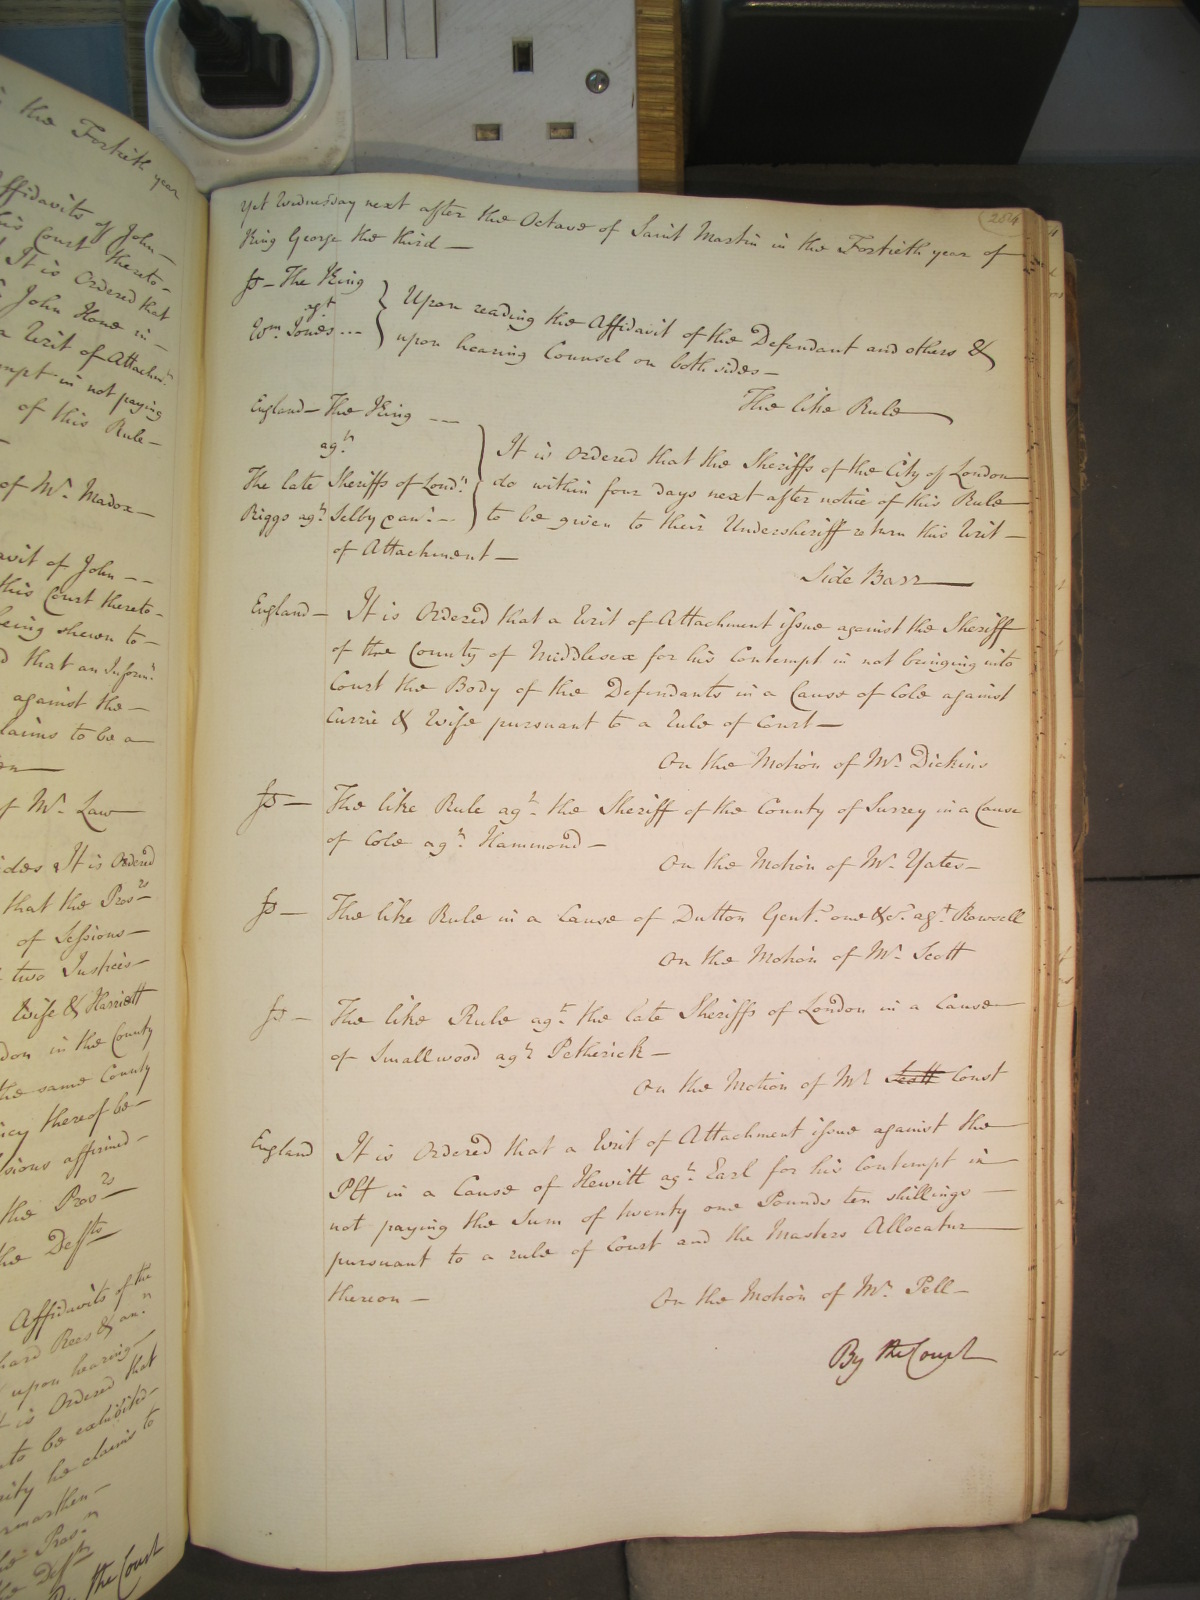 s the Fortieth year
Affidavits of John —
his Court thereto —
It is Ordered that
John Hone in —
a Writ of Attachmt
mpt in not paying
of this Rule —
of Mr. Madox —
avit of John — —
this Court thereto —
being shewn to —
d that an Informn
against the —
laims to be a —
of Mr. Law
ides It is Ordered
that the Prosrs
of Sessions —
two Justices —
Wife & Harriett
don in the County
the same County
thereof be —
ssions affirmed —
the Prosrs
the Defts
Affidavits of the
hard Rees & anr
upon hearing —
t is Ordered that
to be exhibited —
he claims to
rmarthen —
Prosr
the Deft
By the Court
264
Yet Wednesday next after the Octave of Saint Martin in the Fortieth year of
King George the third —
ss — The King
agt
Wm. Jones ...
Upon reading the Affidavit of the Defendant and others &
upon hearing Counsel on both sides —
The like Rule
England — The King — —
agt
The late Sheriffs of Londn
Riggs agt Selby ...
It is ordered that the Sheriffs of the City of London
do within four days next after notice of this Rule
to be given to their Undersheriff return this Writ —
of Attachment —
Side Barr
England — It is Ordered that a Writ of Attachment issue against the Sheriff
of the County of Middlesex for his Contempt in not bringing into
Court the Body of the Defendants in a Cause of Cole against
Currie & Wife pursuant to a rule of Court —
On the Motion of Mr. Dickins
ss — The like Rule agt the Sheriff of the County of Surrey in a Cause
of Cole agt Hammond —
On the Motion of Mr. Yates —
ss — The like Rule in a Cause of Dutton Gent. one &c. agt Rowsell
On the Motion of Mr. Scott
ss — The like Rule agt. the late Sheriffs of London in a Cause
of Smallwood agt Petherick —
On the Motion of Mr. Scott Const
England It is Ordered that a Writ of Attachment issue against the
Plt in a Cause of Hewitt agt. Earl for his Contempt in
not paying the Sum of twenty one Pounds ten shillings —
pursuant to a rule of Court and the Masters Allocatur
thereon —
On the Motion of Mr. Pell —
By the Court